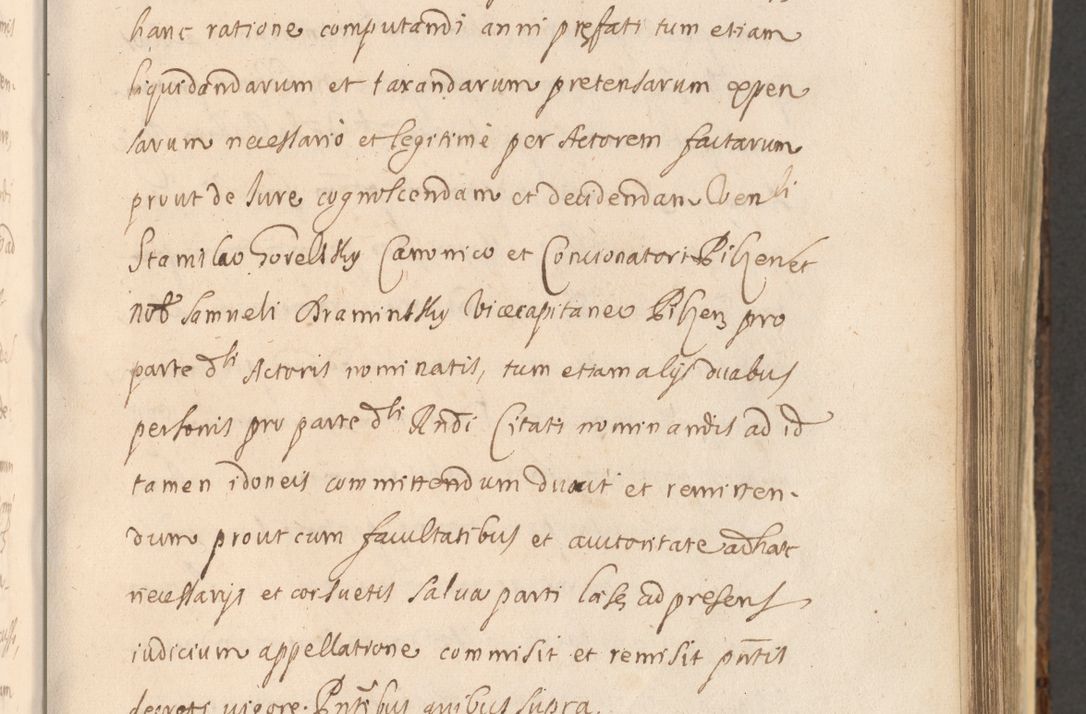 hanc ratione computandi anni pręfati tum etiam
liquidandarum et taxandarum pretensarum expen
sarum necessario et legitime per Actorem factarum
prout de Iure cognoscendam et decidendam Venli
Stanislao Gorelsky Canonico et Concionatori Bihen et
nob Samueli Braminsky Vicecapitaneo Bihen pro
parte dti Actoris nominatis, tum etiam alijs duabus
personis pro parte dti Rndi Citati nominandis ad id
tamen idoneis committendum duxit et remitten-
dum prout cum facultatibus et auctoritate ad hac
necessarijs et consuetis salva parti læsę ad presens
iudicium appellatione commisit et remisit pntis
decreti vigore. Pntibus quibus supra.